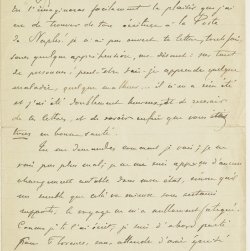 tu t'imagineras facilement le plaisir que j'ai
eu de trouver de ton écriture à la Poste
de Naples. je n'ai pas ouvert ta lettre, toutefois,
sans quelque appréhension, me disant: sur tant
de personnes, peut être vais-je apprendre quelque
maladie, quelque malheur... il n'en a rien été
et j'ai été doublement heureux, et de recevoir
de tes lettres, et de savoir enfin que vous étiez
tous en bonne santé.
Tu me demandes comment je vais; je ne
vais pas plus mal; je ne me suis apperçu d'aucun
changement notable dans mon état, sinon qu'il
me semble que cela va mieux sous certains
rapports; le voyage ne m'a nullement fatigué.
Comme je te l'ai écrit, je suis d'abord parti
pour Florence, sans attendre d'avis